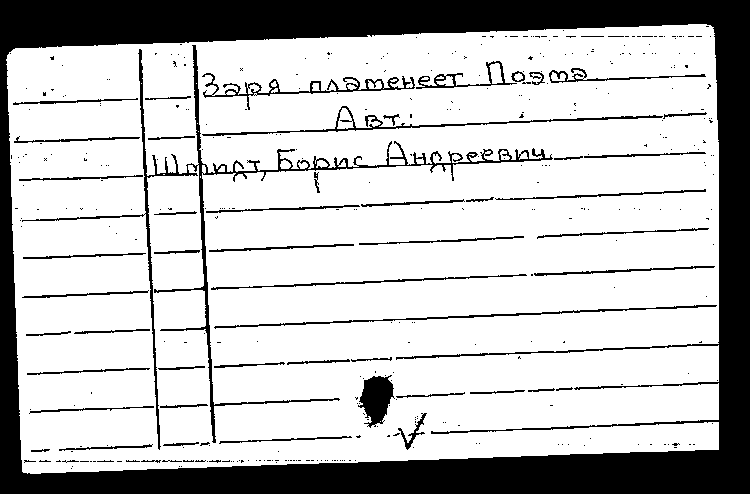 Заря пламенеет Поэма
Авт.:
Шмидт, Борис Андреевич